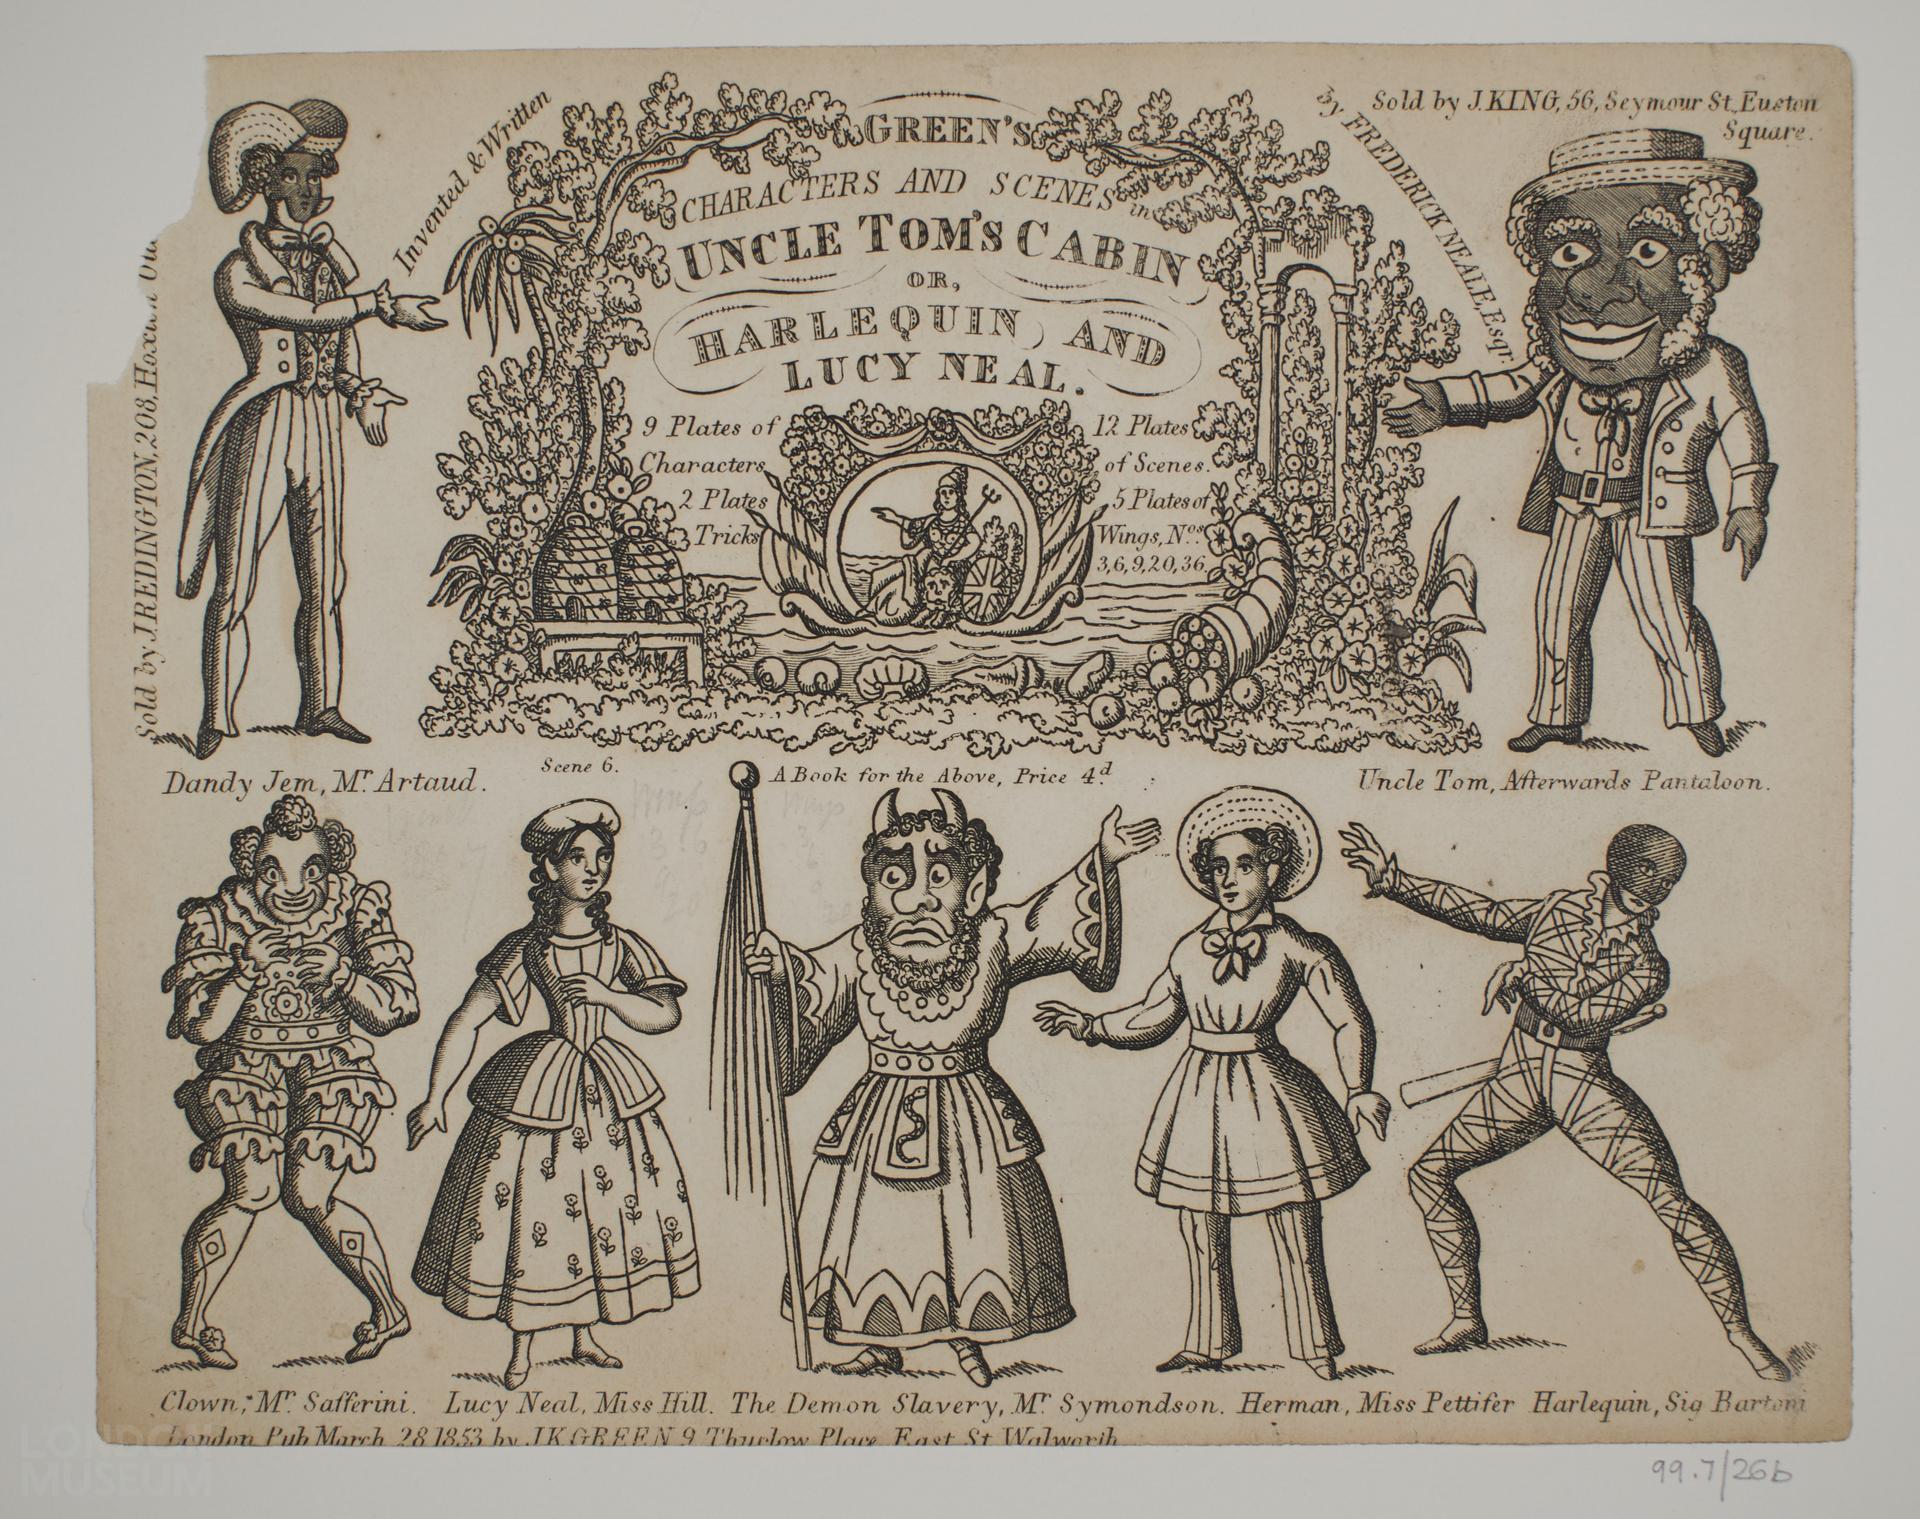 Invented & Written
by FREDERICK NEALE, Esqr.
Sold by J. KING, 56, Seymour St, Euston
Square.
Sold by J. REDINGTON, 208, Hoxton
GREEN'S
CHARACTERS AND SCENES in
UNCLE TOM'S CABIN
OR,
HARLEQUIN AND
LUCY NEAL.
9 Plates of
Characters,
2 Plates
Tricks
12 Plates
of Scenes.
5 Plates of
Wings, Nos.
3,6,9,20,36.
Dandy Jem, Mr. Artaud.
Scene 6.
A Book for the Above, Price 4d.
Uncle Tom, Afterwards Pantaloon.
Clown, Mr. Safferini. Lucy Neal, Miss Hill. The Demon Slavery, Mr. Symondson. Herman, Miss Pettifer Harlequin, Sig Bartoni
London Pub March 28 1853 by J K GREEN 9 Thurlow Place East St Walworth
99.7/26b
LONDON
MUSEUM